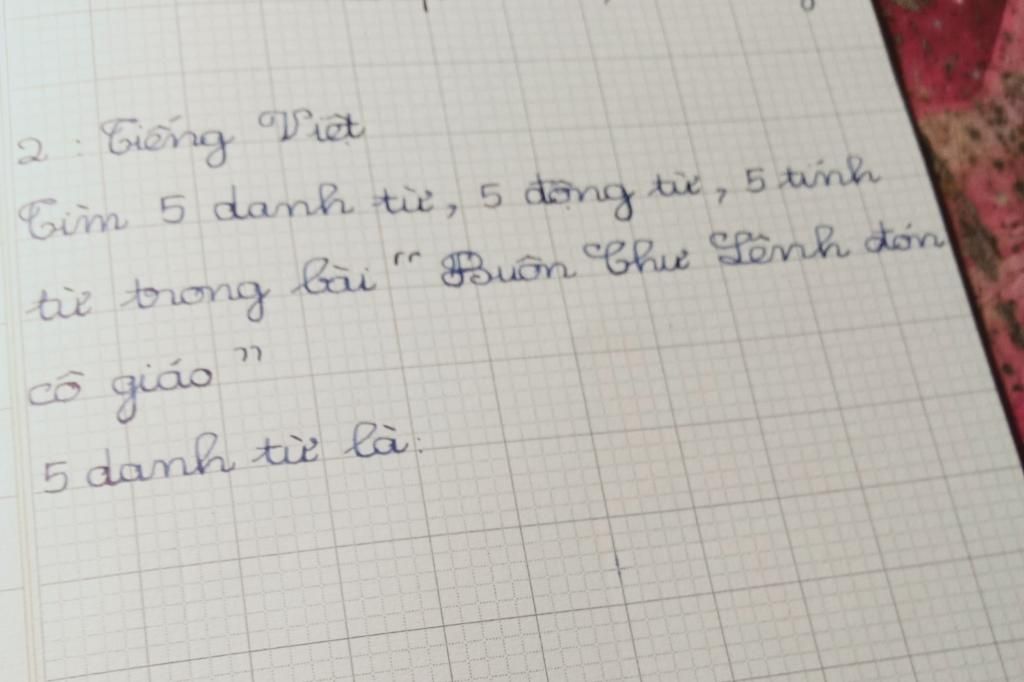 2 : Tiếng Việt
Tìm 5 danh từ, 5 động từ, 5 tính
từ trong bài "Buôn Chư Lênh đón
cô giáo"
5 danh từ là: